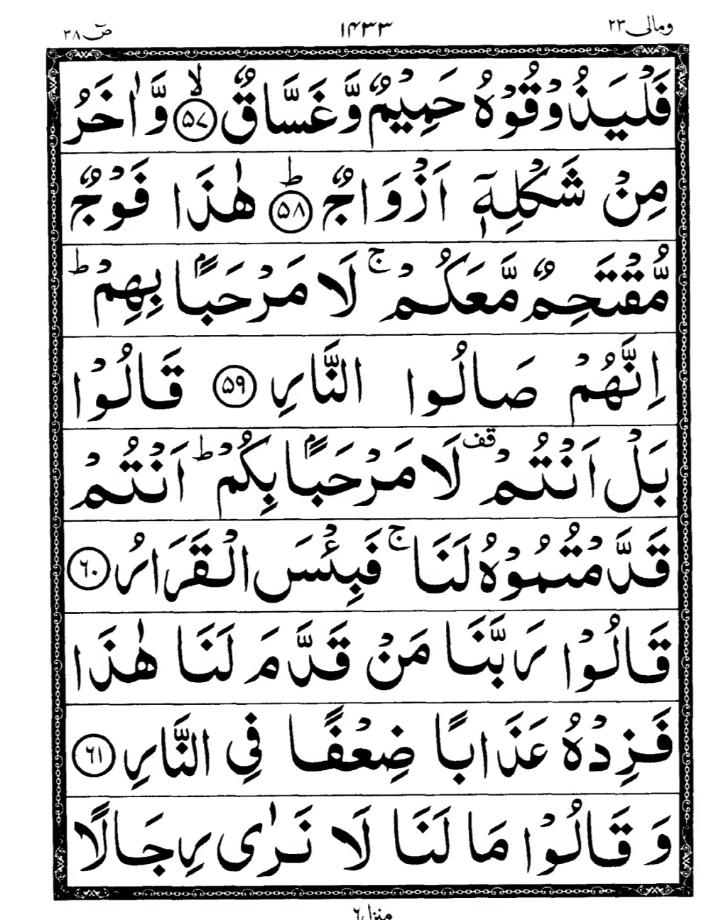 ومالی ٢٣ ١٤٣٣ صٓ ٣٨
فَلۡيَذُوۡقُوۡهُ حَمِيۡمٌ وَّغَسَّاقٌ ۙ‏﴿۵۷﴾ وَّاٰخَرُ
مِنۡ شَكۡلِهٖۤ اَزۡوَاجٌ ؕ‏﴿۵۸﴾ هٰذَا فَوۡجٌ
مُّقۡتَحِمٌ مَّعَكُمۡ‌ۚ لَا مَرۡحَبًۢـا بِهِمۡ‌ؕ
اِنَّهُمۡ صَالُوا النَّارِ‏﴿۵۹﴾ قَالُوۡا
بَلۡ اَنۡتُمۡ قف لَا مَرۡحَبًۢـا بِكُمۡ‌ؕ اَنۡتُمۡ
قَدَّمۡتُمُوۡهُ لَنَا‌ۚ فَبِئۡسَ الۡقَرَارُ‏﴿۶۰﴾
قَالُوۡا رَبَّنَا مَنۡ قَدَّمَ لَنَا هٰذَا
فَزِدۡهُ عَذَابًا ضِعۡفًا فِى النَّارِ‏﴿۶۱﴾
وَ قَالُوۡا مَا لَنَا لَا نَرٰى رِجَالًا
منزل ٦